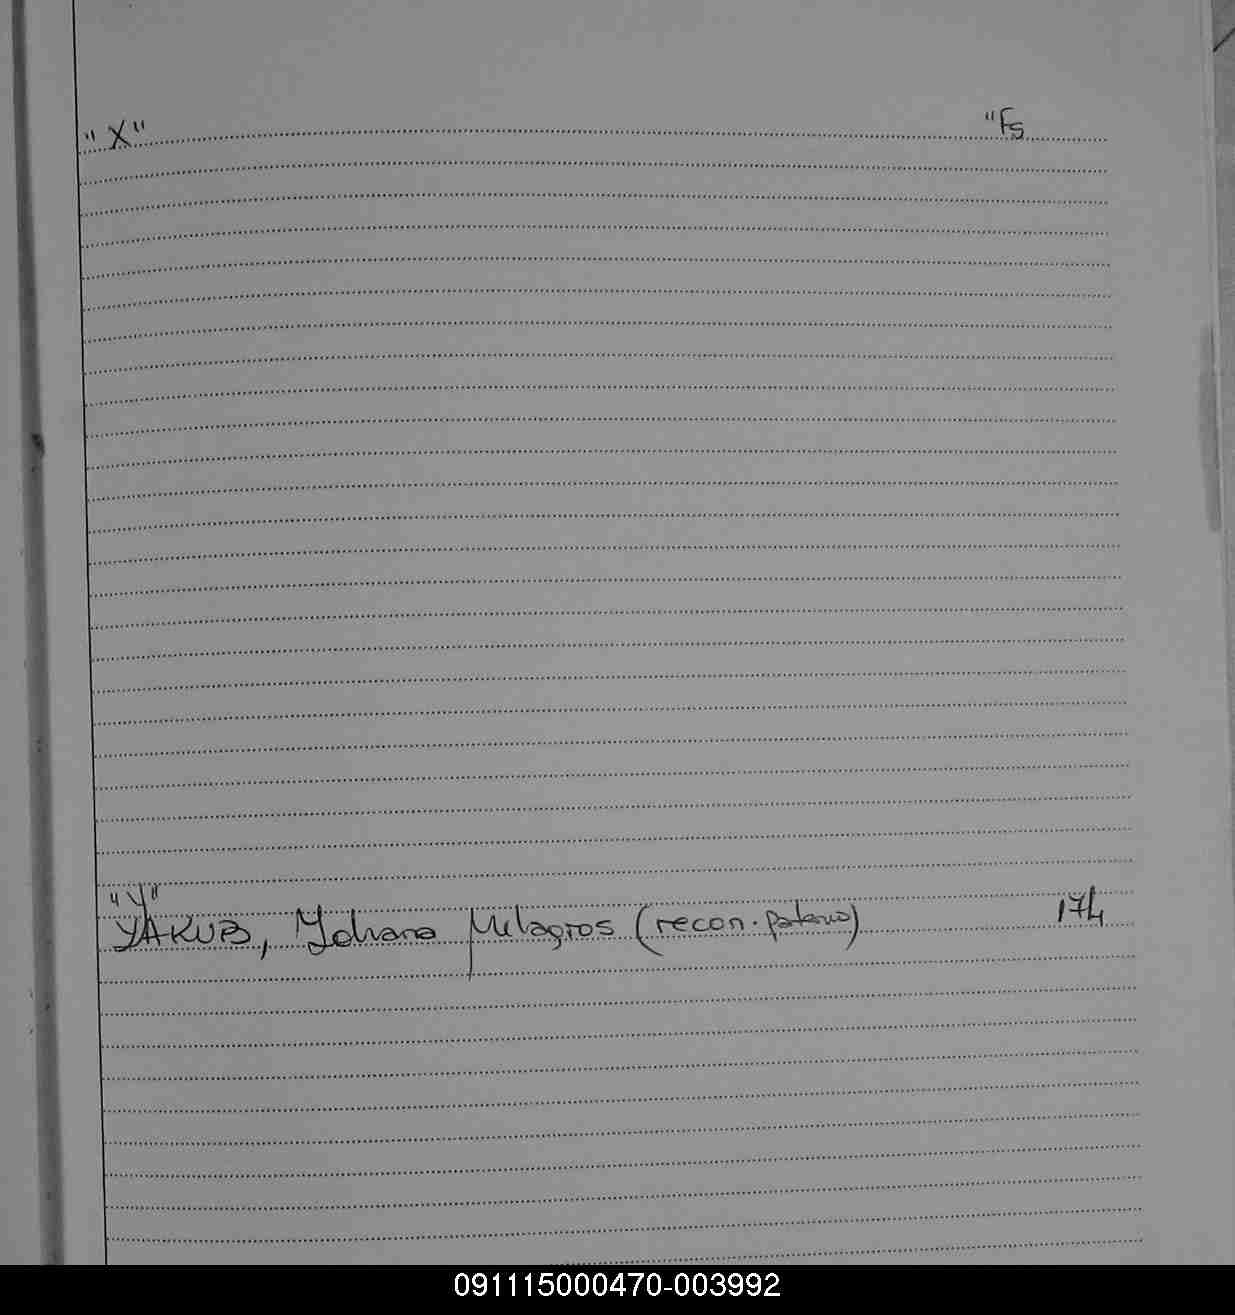 "X" "Fs
"Y"
YAKUB, Yohana Milagros (recon. paterno) 174
091115000470-003992